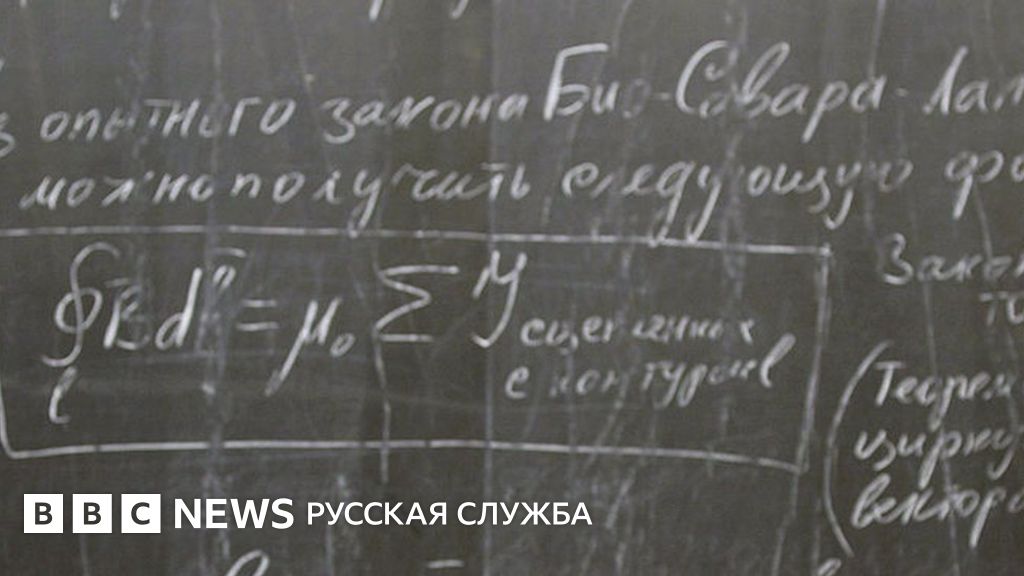 з опытного закона Био-Савара-Лап
можно получить следующую фо
∮ B dl = μ₀ Σ I сцепленных
l
с контуром l
Зако
(Теорем
цирку
вектора
BBC NEWS РУССКАЯ СЛУЖБА